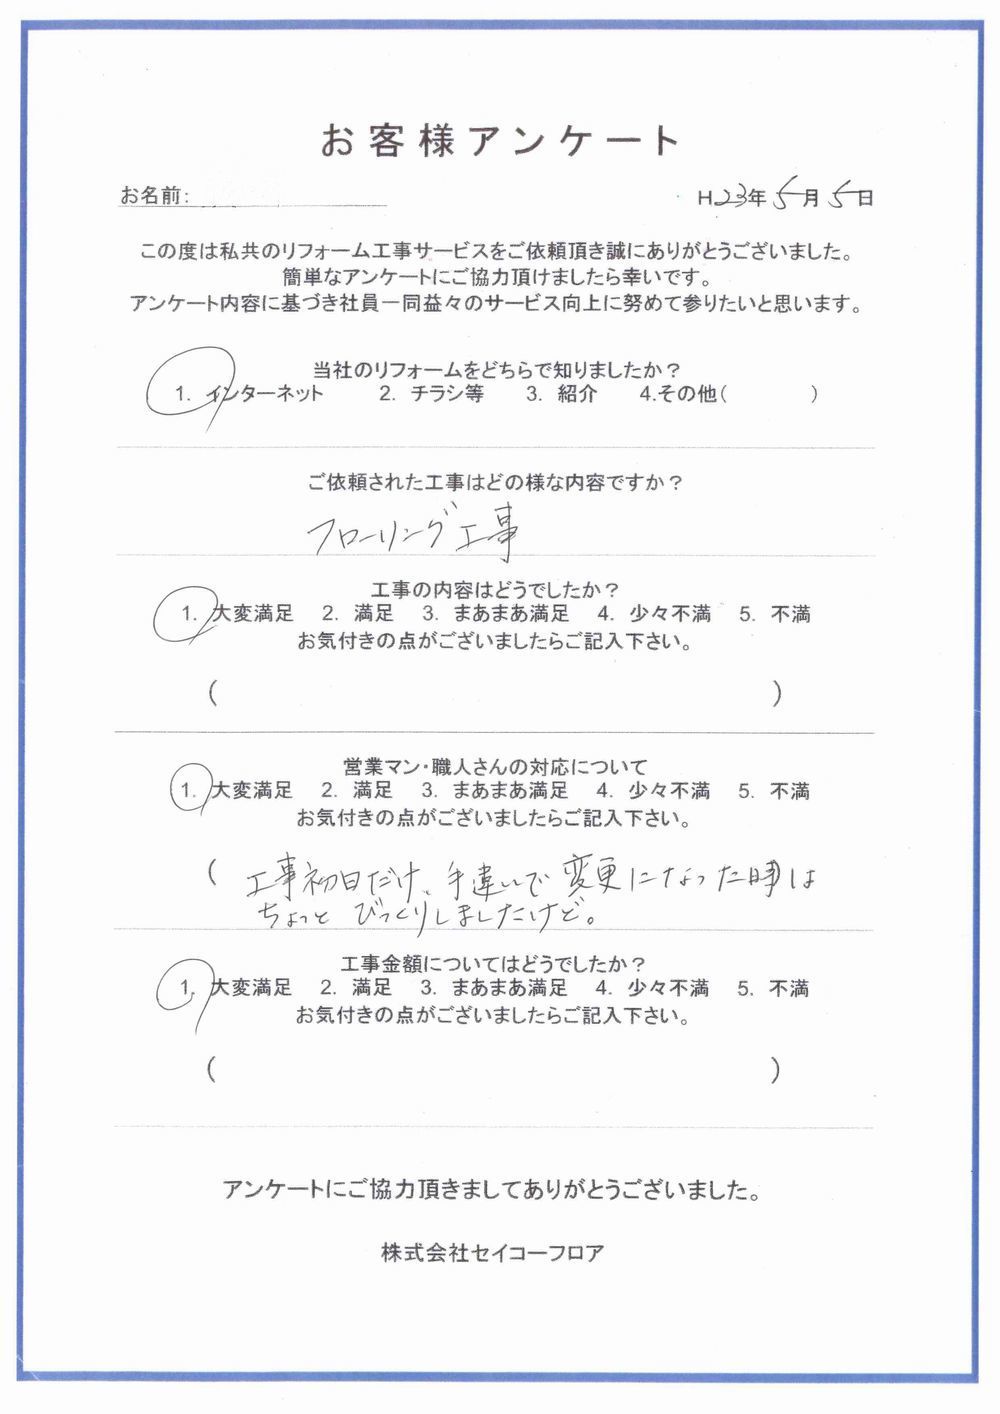 お客様アンケート
お名前:
H23年5月5日
この度は私共のリフォーム工事サービスをご依頼頂き誠にありがとうございました。
簡単なアンケートにご協力頂けましたら幸いです。
アンケート内容に基づき社員一同益々のサービス向上に努めて参りたいと思います。
当社のリフォームをどちらで知りましたか？
1. インターネット 2. チラシ等 3. 紹介 4.その他( )
ご依頼された工事はどの様な内容ですか？
フローリング工事
工事の内容はどうでしたか？
1. 大変満足 2. 満足 3. まあまあ満足 4. 少々不満 5. 不満
お気付きの点がございましたらご記入下さい。
( )
営業マン・職人さんの対応について
1. 大変満足 2. 満足 3. まあまあ満足 4. 少々不満 5. 不満
お気付きの点がございましたらご記入下さい。
( 工事初日だけ、手違いで変更になった時は
ちょっとびっくりしましたけど。
工事金額についてはどうでしたか？
1. 大変満足 2. 満足 3. まあまあ満足 4. 少々不満 5. 不満
お気付きの点がございましたらご記入下さい。
( )
アンケートにご協力頂きましてありがとうございました。
株式会社セイコーフロア